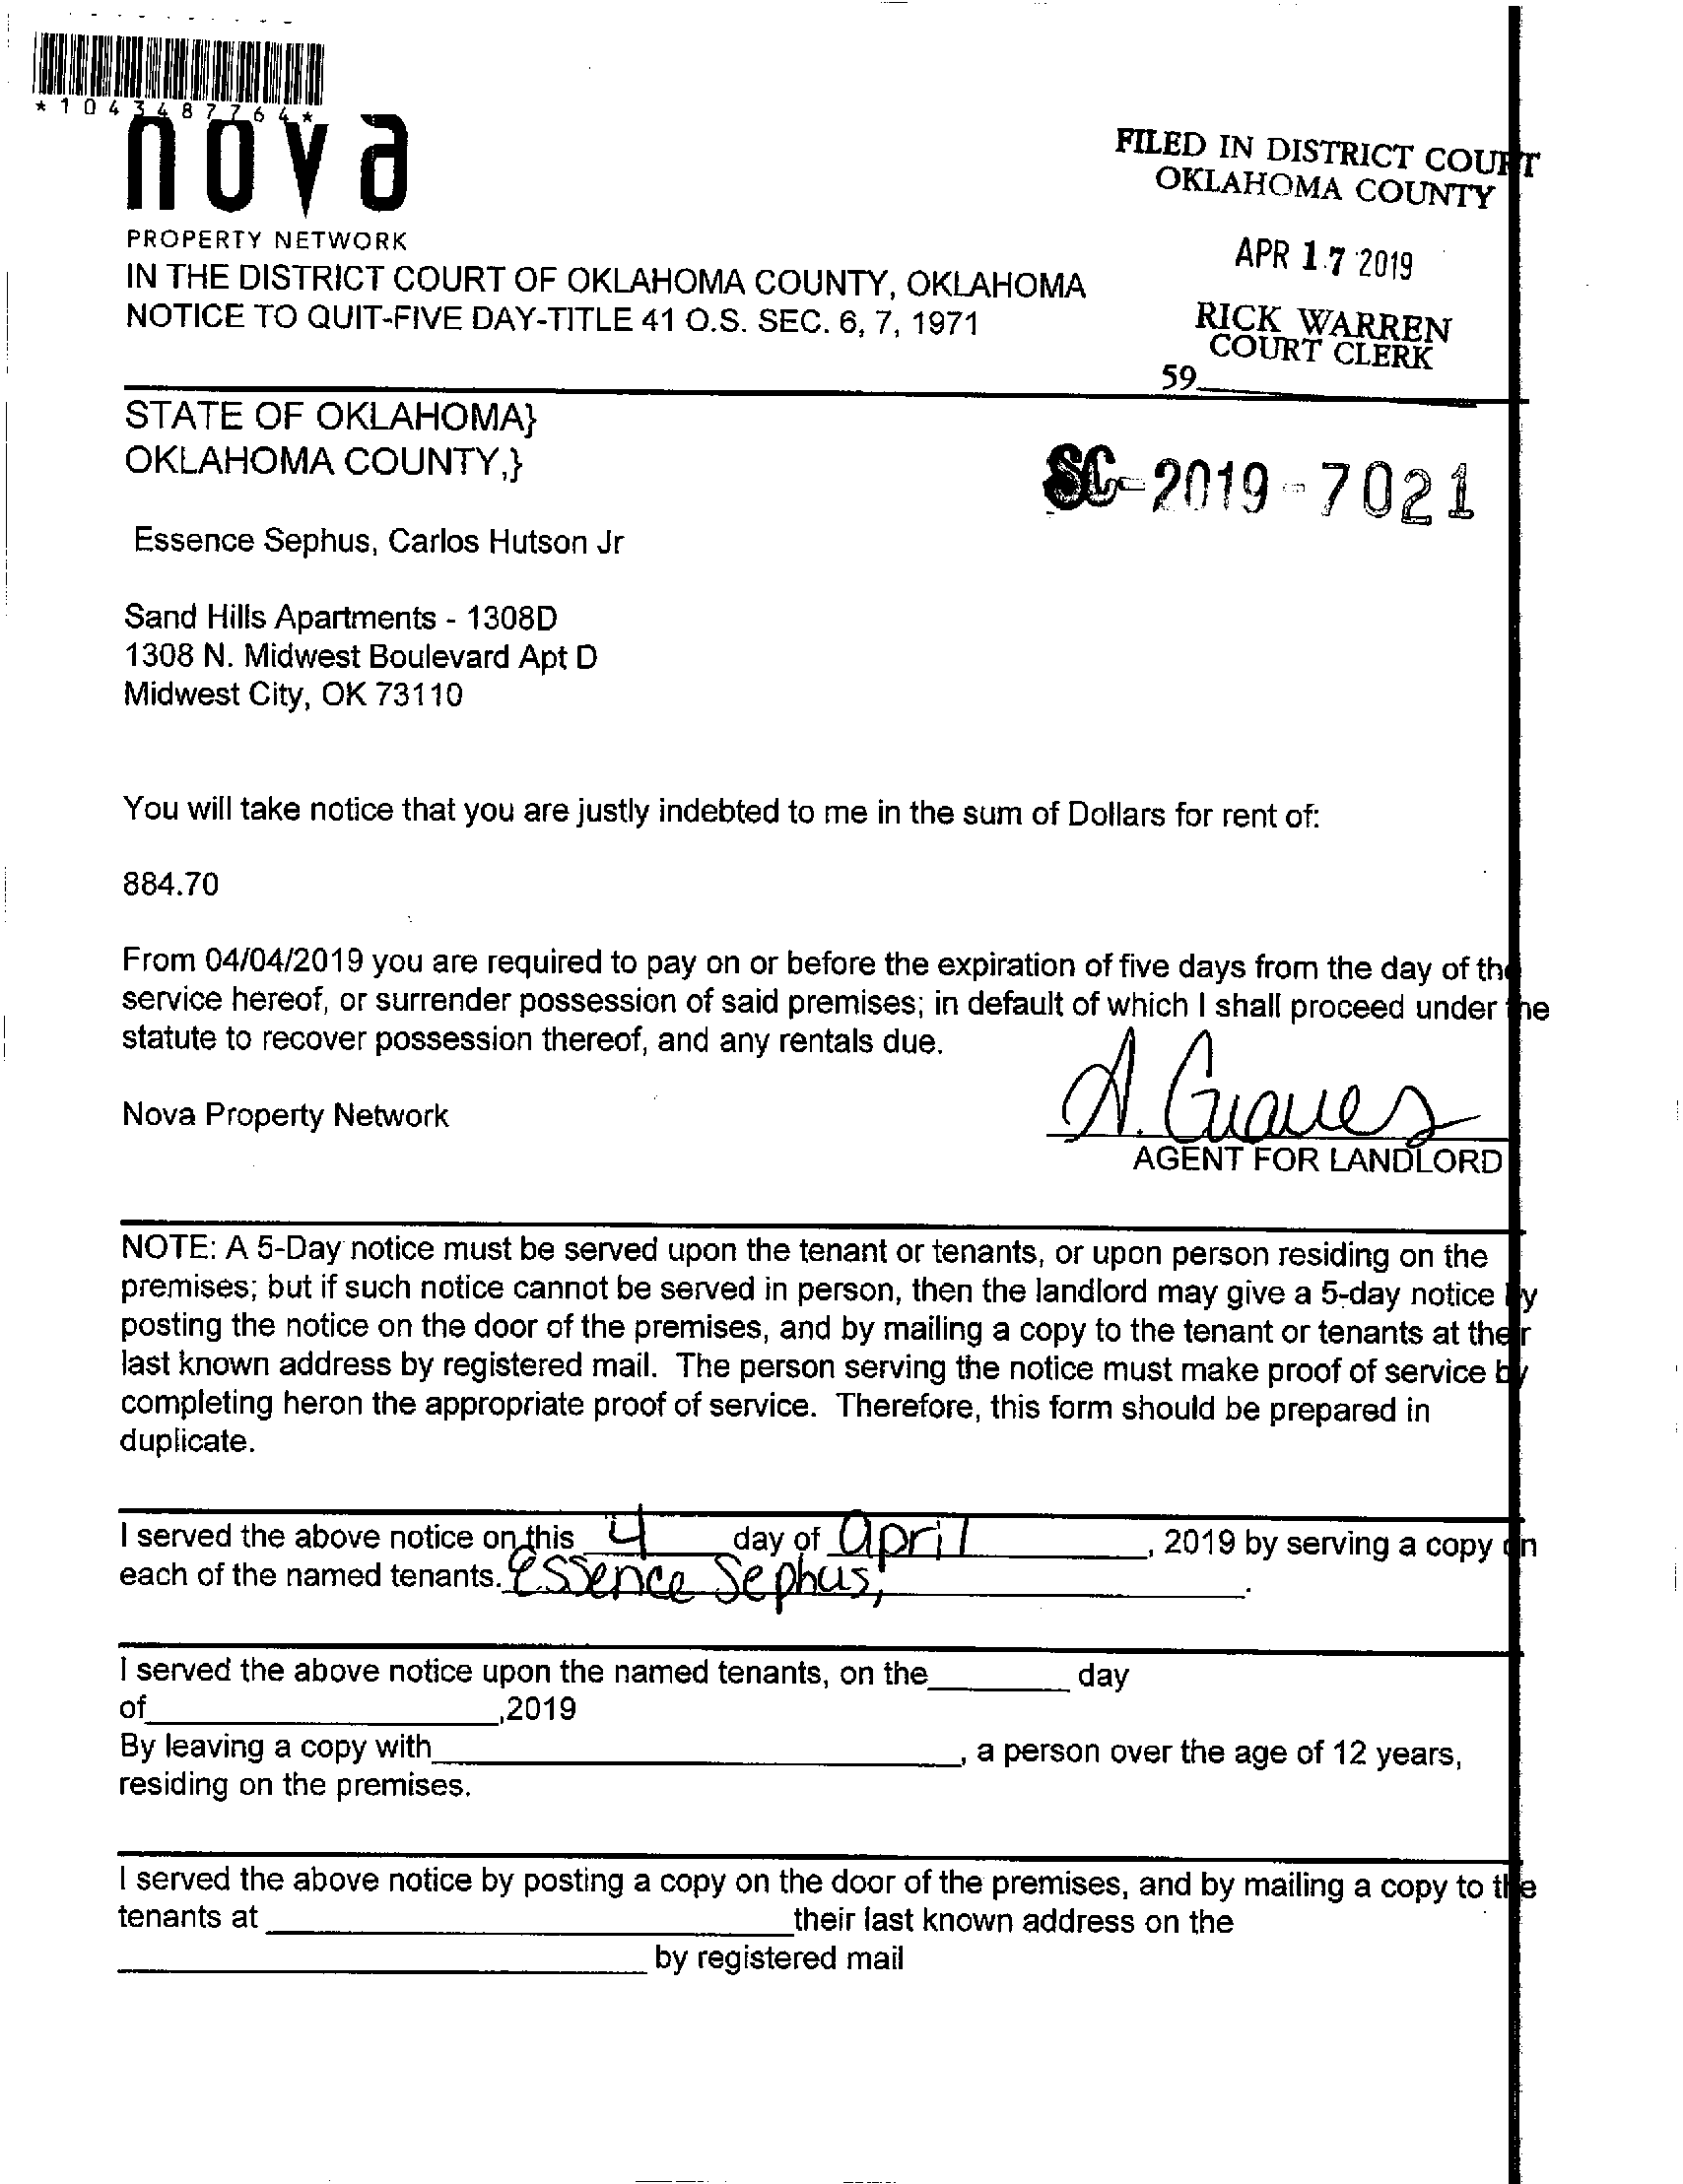 *1043487764*
nova
PROPERTY NETWORK
FILED IN DISTRICT COURT
OKLAHOMA COUNTY
APR 17 2019
RICK WARREN
COURT CLERK
59
IN THE DISTRICT COURT OF OKLAHOMA COUNTY, OKLAHOMA
NOTICE TO QUIT-FIVE DAY-TITLE 41 O.S. SEC. 6, 7, 1971
STATE OF OKLAHOMA}
OKLAHOMA COUNTY,}
SC-2019-7021
Essence Sephus, Carlos Hutson Jr
Sand Hills Apartments - 1308D
1308 N. Midwest Boulevard Apt D
Midwest City, OK 73110
You will take notice that you are justly indebted to me in the sum of Dollars for rent of:
884.70
From 04/04/2019 you are required to pay on or before the expiration of five days from the day of the
service hereof, or surrender possession of said premises; in default of which I shall proceed under the
statute to recover possession thereof, and any rentals due.
Nova Property Network
A. Graves
AGENT FOR LANDLORD
NOTE: A 5-Day notice must be served upon the tenant or tenants, or upon person residing on the
premises; but if such notice cannot be served in person, then the landlord may give a 5-day notice by
posting the notice on the door of the premises, and by mailing a copy to the tenant or tenants at their
last known address by registered mail. The person serving the notice must make proof of service by
completing heron the appropriate proof of service. Therefore, this form should be prepared in
duplicate.
I served the above notice on this 4 day of April, 2019 by serving a copy on
each of the named tenants. Essence Sephus, .
I served the above notice upon the named tenants, on the ________ day
of ____________________,2019
By leaving a copy with ______________________________, a person over the age of 12 years,
residing on the premises.
I served the above notice by posting a copy on the door of the premises, and by mailing a copy to the
tenants at ______________________________ their last known address on the
______________________________ by registered mail